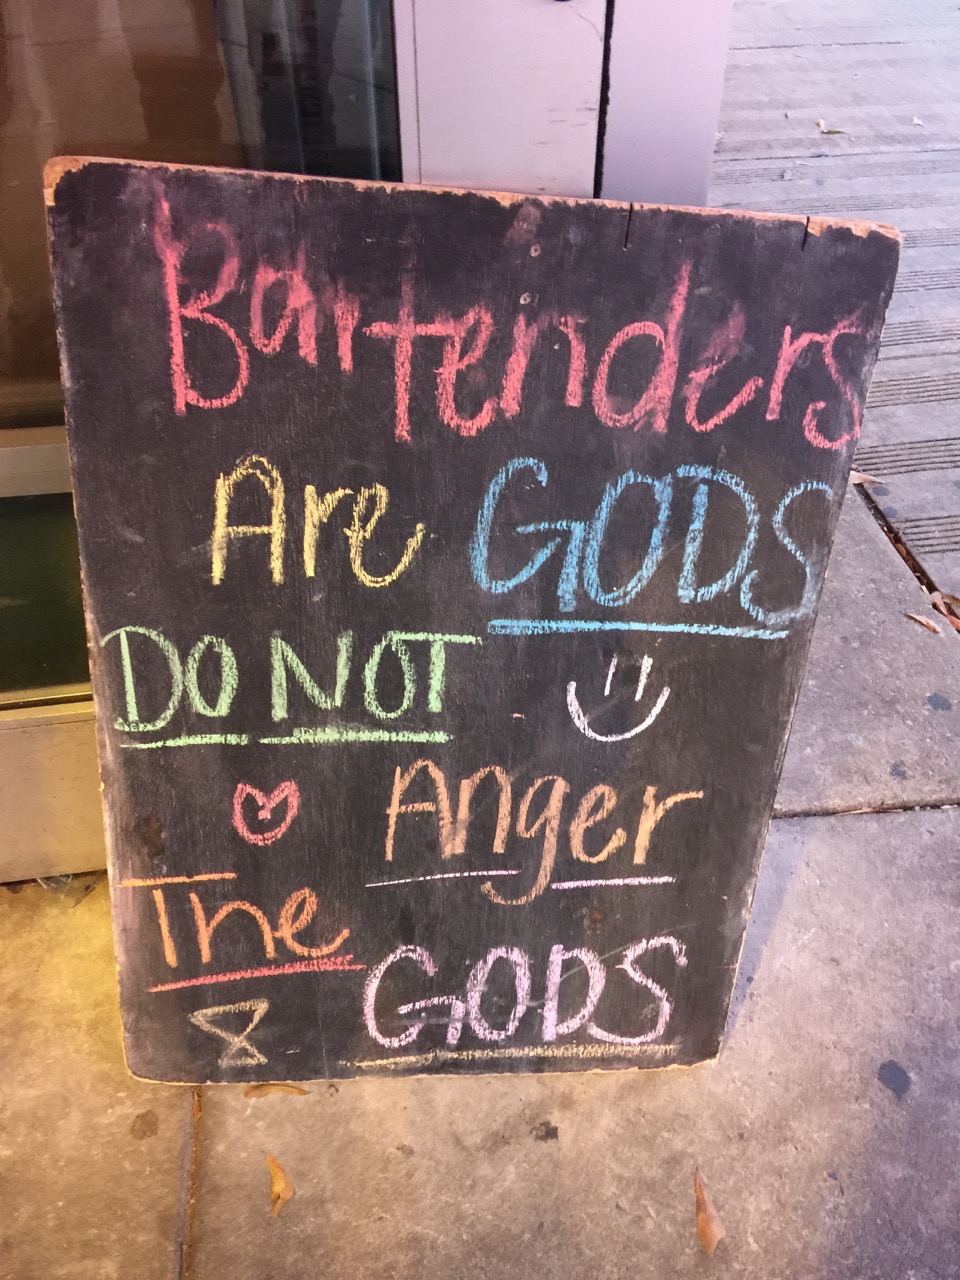 Bartenders
Are GODS
DO NOT
Anger
The
GODS